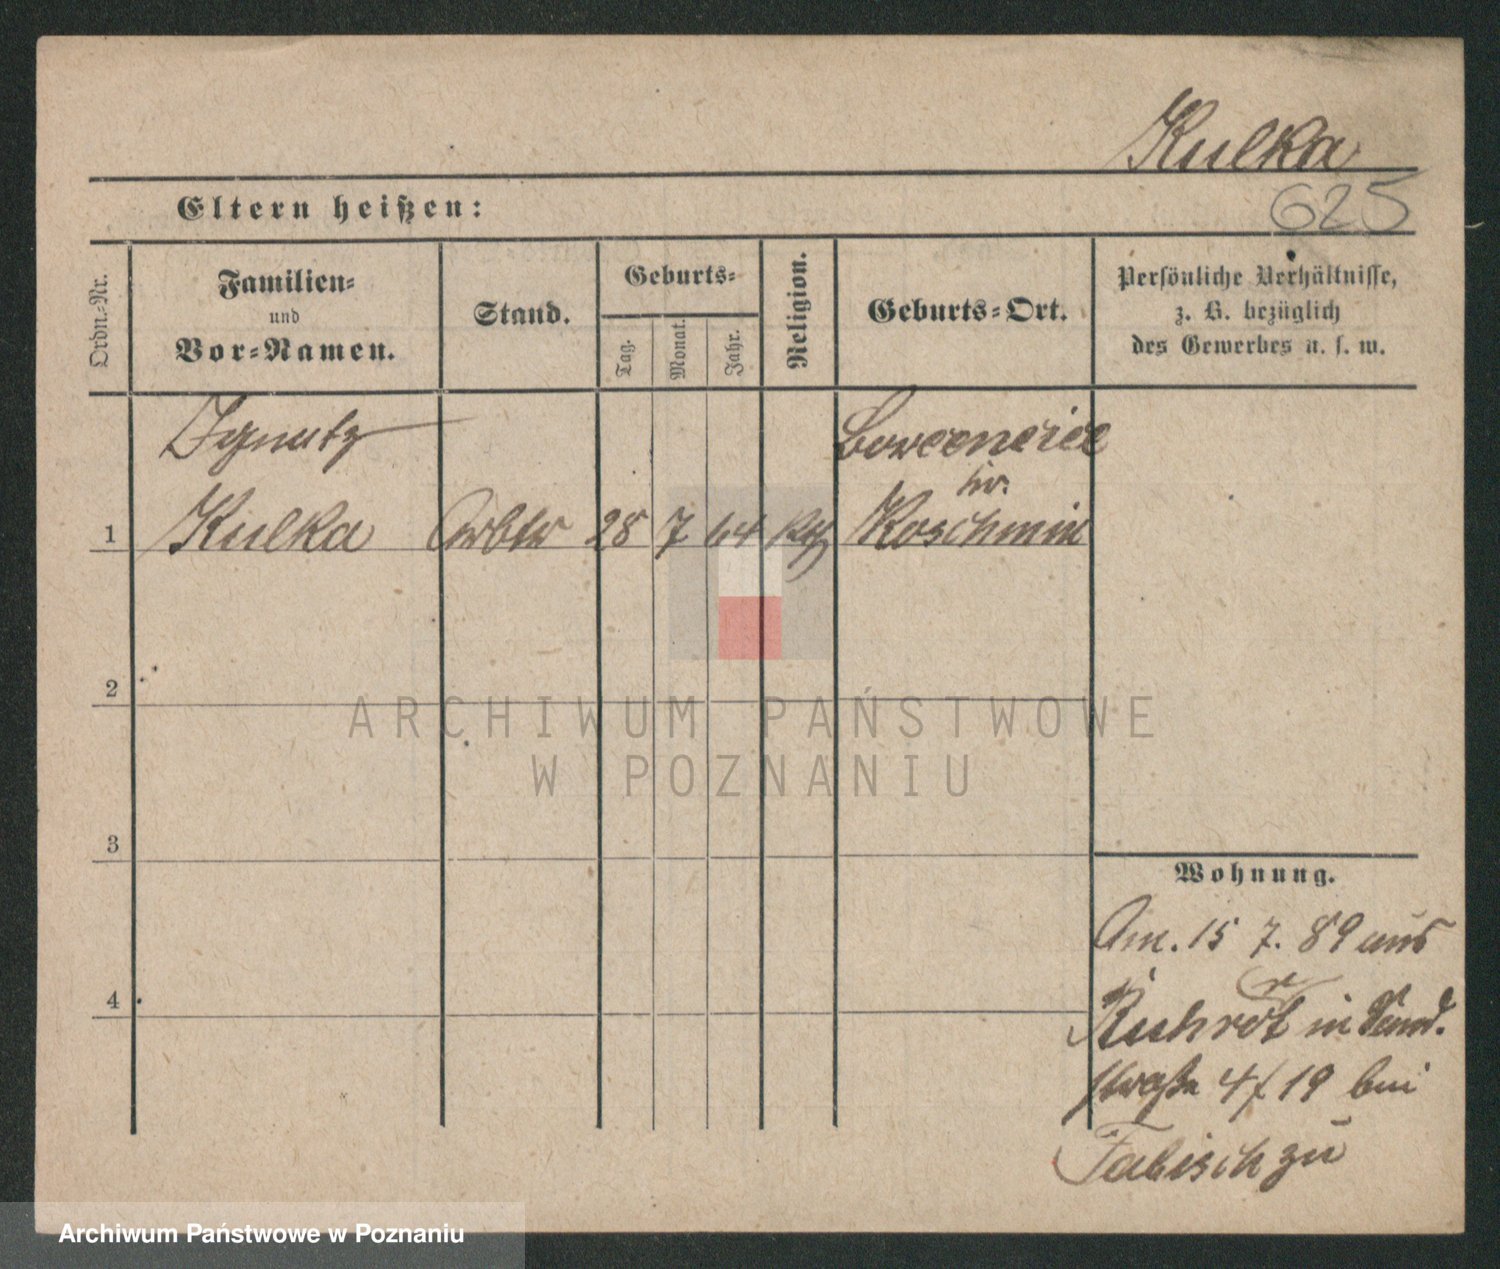 Kulka
625
Eltern heißen:
Ordn.-Nr.
Familien-
und
Vor-Namen.
Stand.
Geburts-
Tag.
Monat.
Jahr.
Religion.
Geburts-Ort.
Persönliche Verhältnisse,
z. B. bezüglich
des Gewerbes u. s. w.
Ignatz
1 Kulka Arbtr 28 7 64 kth
Kr.
Koschmin
2
3
4
ARCHIWUM PAŃSTWOWE
W POZNANIU
Wohnung.
Am. 15 7. 89 aus
in Sand.
straße 4 f 19 bei
Fabisch zu
Archiwum Państwowe w Poznaniu